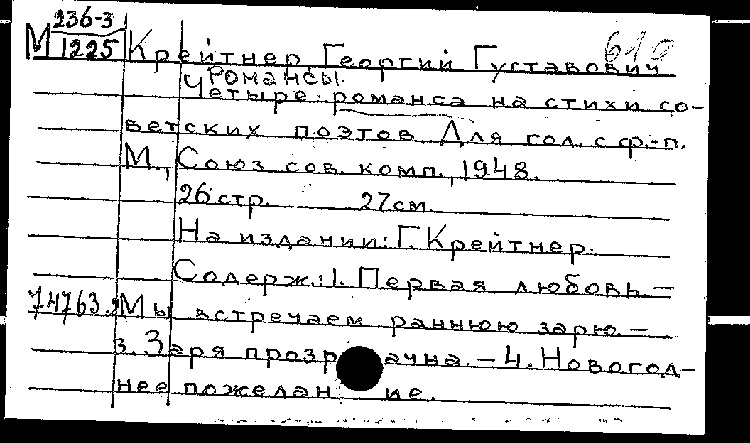 М 236-3
1225
610
Крейтнер Георгий Густавович
Романсы.
Четыре романса на стихи со-
ветских поэтов Для гол. с ф.-п.
М., Союз сов. комп., 1948.
26 стр. 27 см.
На издании: Г. Крейтнер.
Содерж.: 1. Первая любовь –
74763. 2. Мы встречаем раннюю зарю. –
3. Заря прозрачна. – 4. Новогод-
нее пожелание.